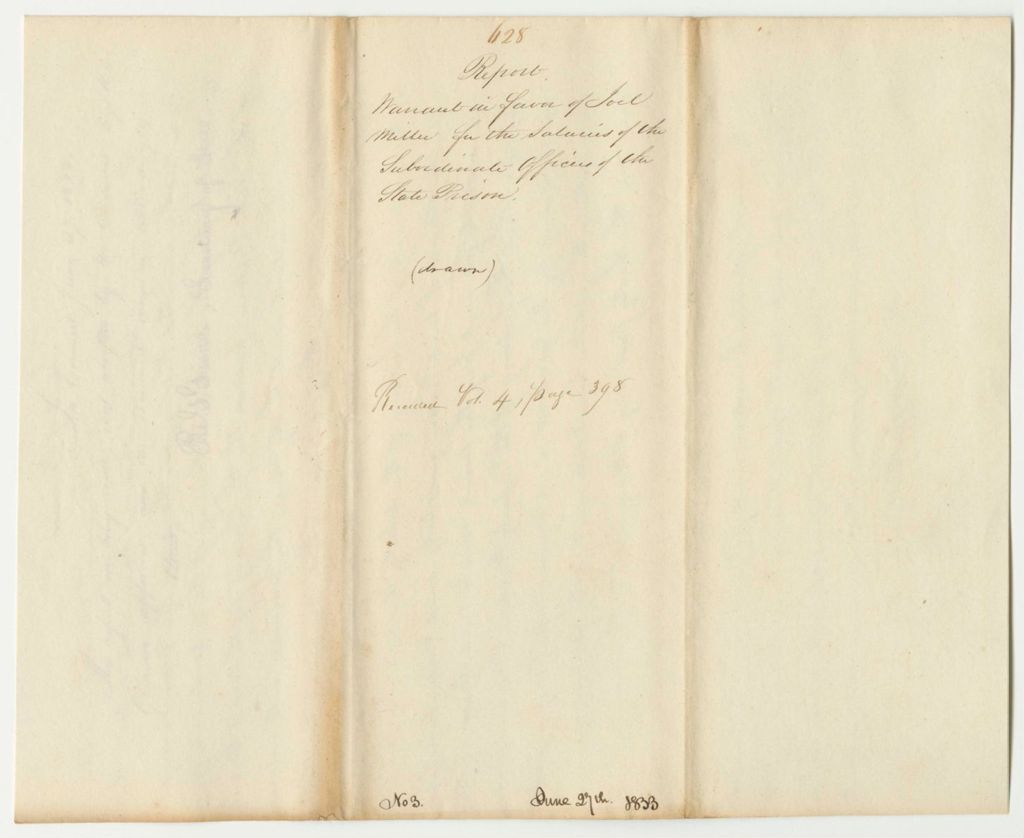 628
Report.
Warrant in favor of Joel
Miller for the Salaries of the
Subordinate Officers of the
State Prison.
(drawn)
Recorded Vol. 4, page 398
No 3. June 27th. 1833